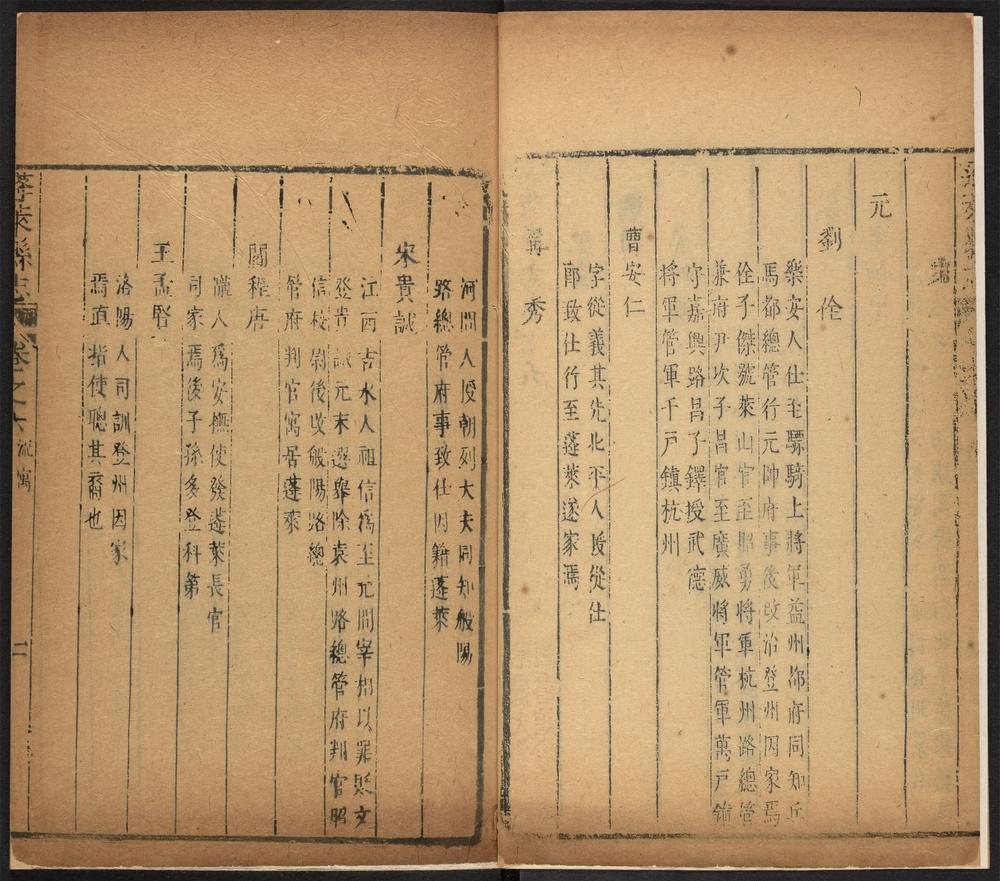 元
劉佺
樂安人仕至驃騎上將軍益州都府同知兵
馬都總管行元帥府事後改治登州因家焉
佺子傑號萊山官至昭勇將軍杭州路總管
兼府尹次子昌官至廣威將軍管軍萬戶鎮
守嘉興路昌子鐸授武德
將軍管軍千戶鎮杭州
曹安仁
字從義其先北平人授從仕
郎致仕行至蓬萊遂家焉
秀
河間人授朝列大夫同知般陽
路總管府事致仕因籍蓬萊
宋貴誠
江西吉水人祖信為至元間宰相以罪
登貴誠元末選舉除袁州路總管府判官昭
信校尉後改般陽路總
管府判官寓居蓬萊
閻程唐
人為安撫使發蓬萊長官
司家焉後子孫多登科第
王孟賢
洛陽人司訓登州因家
焉直指使聰其裔也
蓬萊縣志 卷之六 流寓 二